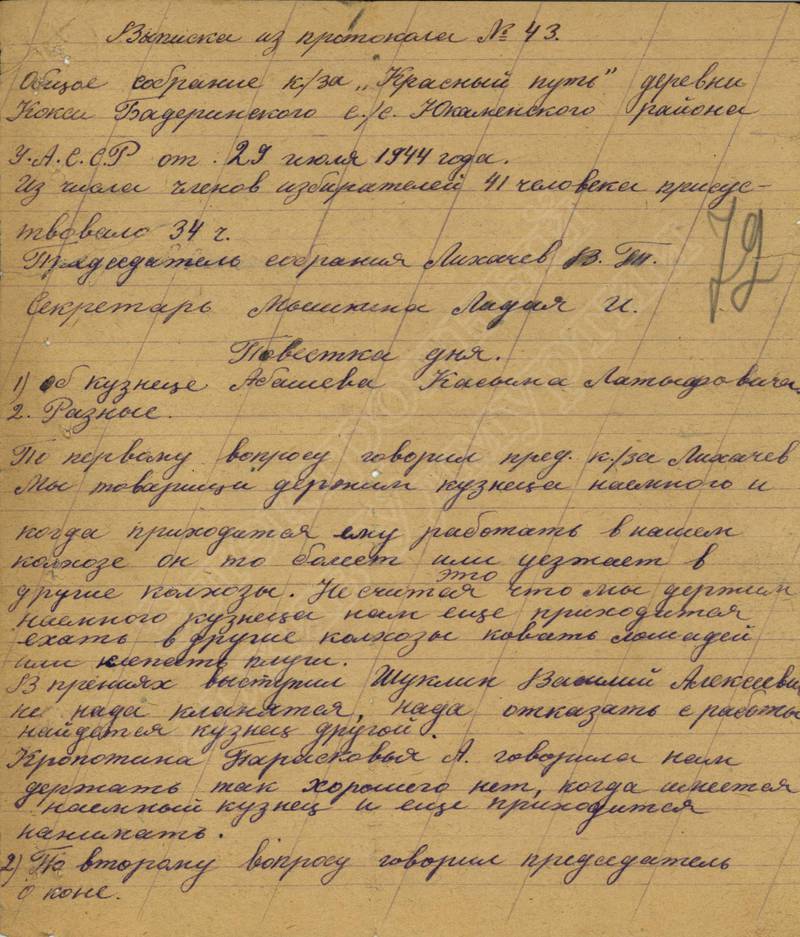 Выписка из протокола № 43.
Общое собрание к/за „Красный путь" деревни
Кокси Бадеринского с./с. Юкаменского района
У.А.С.С.Р от. 29 июля 1944 года.
Из числа членов избирателей 41 человека присуц-
твовало 34 ч.
79
Председатель собрания Лихачев В. Т.
Секретарь Мышкина Лидия И.
Повестка дня.
1) об кузнеце Абашева Касыма Латыфовича.
2. Разные.
По первому вопросу говорил пред. к./за Лихачев
Мы товарищи держим кузнеца наемного и
когда приходится ему работать в нашем
колхозе он то болеет или уезжает в
другие колхозы. Не считая это что мы держим
наемного кузнеца нам еще приходится
ехать в другие колхозы ковать лошадей
или клепать плуги.
В прениях выступил Шуклин Василий Алексеевич
не нада кланятся, нада отказать с работы
найдется кузнец другой.
Кропотина Парасковья А. говорила нам
держать так хорошего нет, когда имеется
наемный кузнец и еще приходится
нанимать.
2) По второму вопросу говорил председатель
о коне.